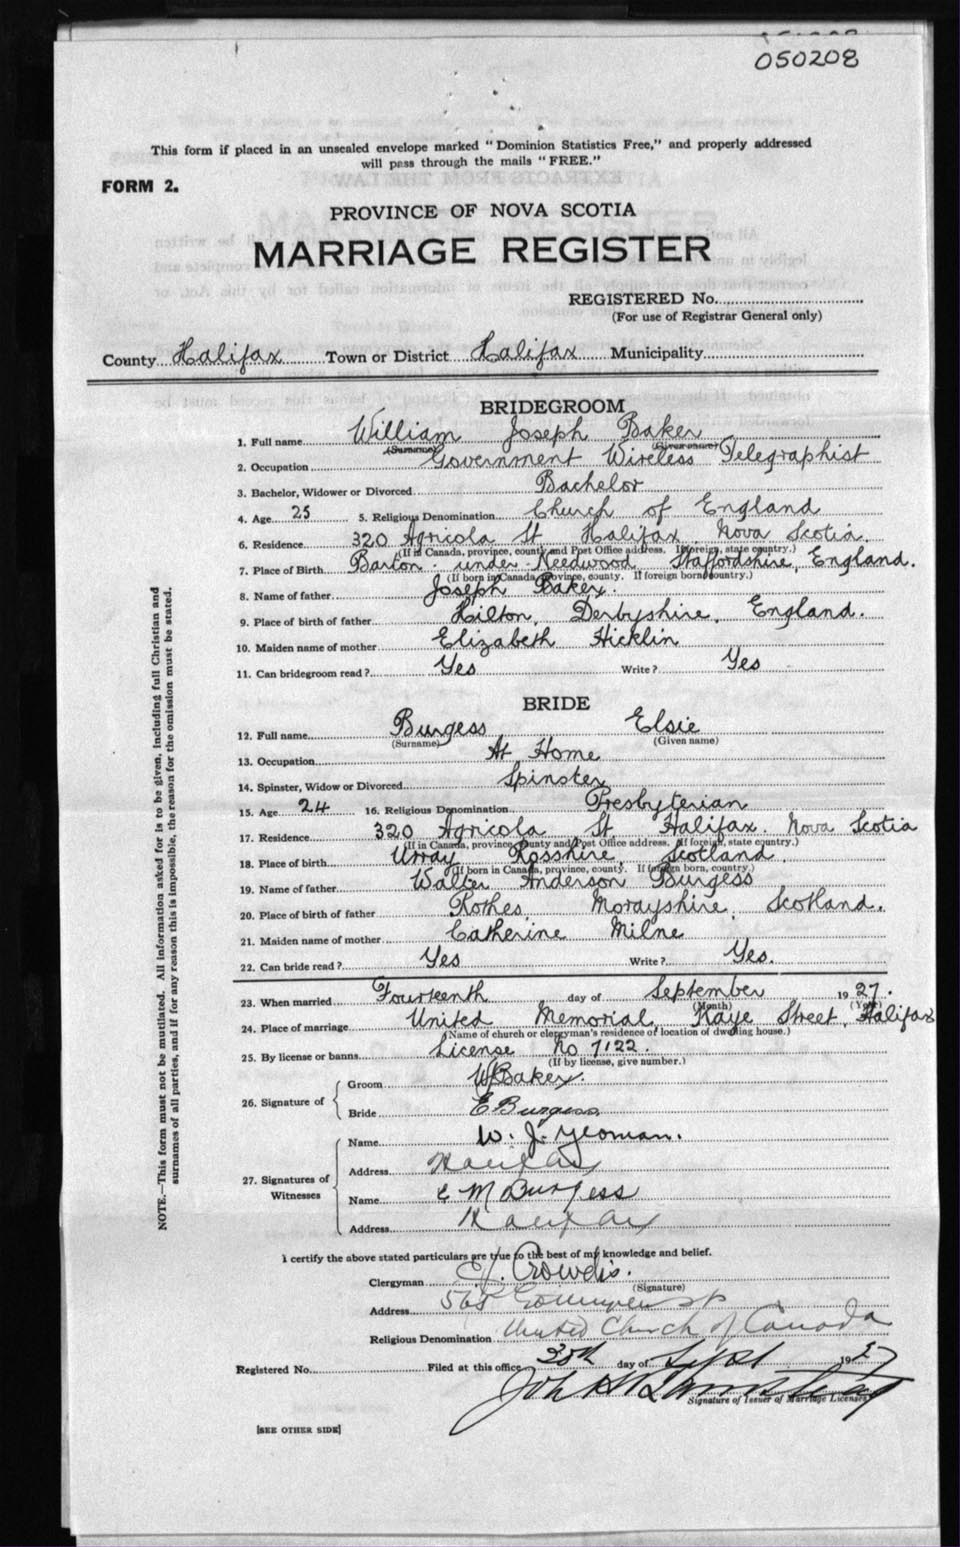 050208
This form if placed in an unsealed envelope marked "Dominion Statistics Free," and properly addressed
will pass through the mails "FREE."
FORM 2.
PROVINCE OF NOVA SCOTIA
MARRIAGE REGISTER
REGISTERED No.
(For use of Registrar General only)
County Halifax Town or District Halifax Municipality
BRIDEGROOM
1. Full name William Joseph Baker
(Surname) (Given name)
2. Occupation Government Wireless Telegraphist
3. Bachelor, Widower or Divorced Bachelor
4. Age 25 5. Religious Denomination Church of England
6. Residence 320 Agricola St Halifax. Nova Scotia.
(If in Canada, province, county and Post Office address. If foreign, state country.)
7. Place of Birth Barton-under-Needwood Staffordshire, England.
(If born in Canada, province, county. If foreign born, country.)
8. Name of father Joseph Baker.
9. Place of birth of father Hilton, Derbyshire, England.
10. Maiden name of mother Elizabeth Hicklin
11. Can bridegroom read? Yes Write? Yes
BRIDE
12. Full name Burgess Elsie
(Surname) (Given name)
13. Occupation At Home
14. Spinster, Widow or Divorced Spinster
15. Age 24 16. Religious Denomination Presbyterian
17. Residence 320 Agricola St. Halifax. Nova Scotia
(If in Canada, province, county and Post Office address. If foreign, state country.)
18. Place of birth Urray Rosshire, Scotland.
(If born in Canada, province, county. If foreign born, country.)
19. Name of father Walter Anderson Burgess
20. Place of birth of father Rothes, Morayshire, Scotland.
21. Maiden name of mother Catherine Milne
22. Can bride read? Yes Write? Yes.
23. When married Fourteenth day of September 1927.
(Month) (Year)
24. Place of marriage United Memorial, Kaye Street, Halifax
(Name of church or clergyman's residence or location of dwelling house.)
25. By license or banns License No 7122.
(If by license, give number.)
26. Signature of
Groom W Baker.
Bride E Burgess
27. Signatures of Witnesses
Name W. J. Yeoman.
Address Halifax
Name E M Burgess
Address Halifax
I certify the above stated particulars are true to the best of my knowledge and belief.
Clergyman E. Crowdis.
(Signature)
Address
Religious Denomination United Church of Canada
Registered No. Filed at this office 30th day of Sept 1927
Signature of Issuer of Marriage Licenses
[SEE OTHER SIDE]
NOTE.—This form must not be mutilated. All information asked for is to be given, including full Christian and
surnames of all parties, and if for any reason this is impossible, the reason for the omission must be stated.